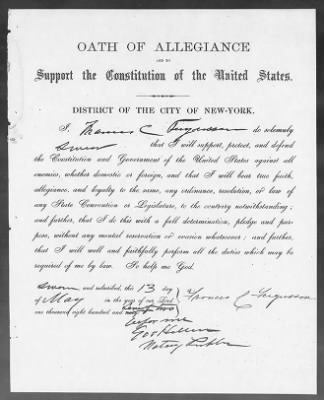 OATH OF ALLEGIANCE
AND TO
Support the Constitution of the United States.
DISTRICT OF THE CITY OF NEW-YORK.
I, Francis C Fergusson do solemnly
swear that I will support, protect, and defend
the Constitution and Government of the United States against all
enemies, whether domestic or foreign, and that I will bear true faith,
allegiance, and loyalty to the same, any ordinance, resolution, or law of
any State Convention or Legislature, to the contrary notwithstanding;
and further, that I do this with a full determination, pledge and pur-
pose, without any mental reservation or evasion whatsoever; and further,
that I will well and faithfully perform all the duties which may be
required of me by law. So help me God.
Sworn and subscribed, this 13 day
of May in the year of our Lord
Francis C Fergusson
one thousand eight hundred and
before me
Notary Public